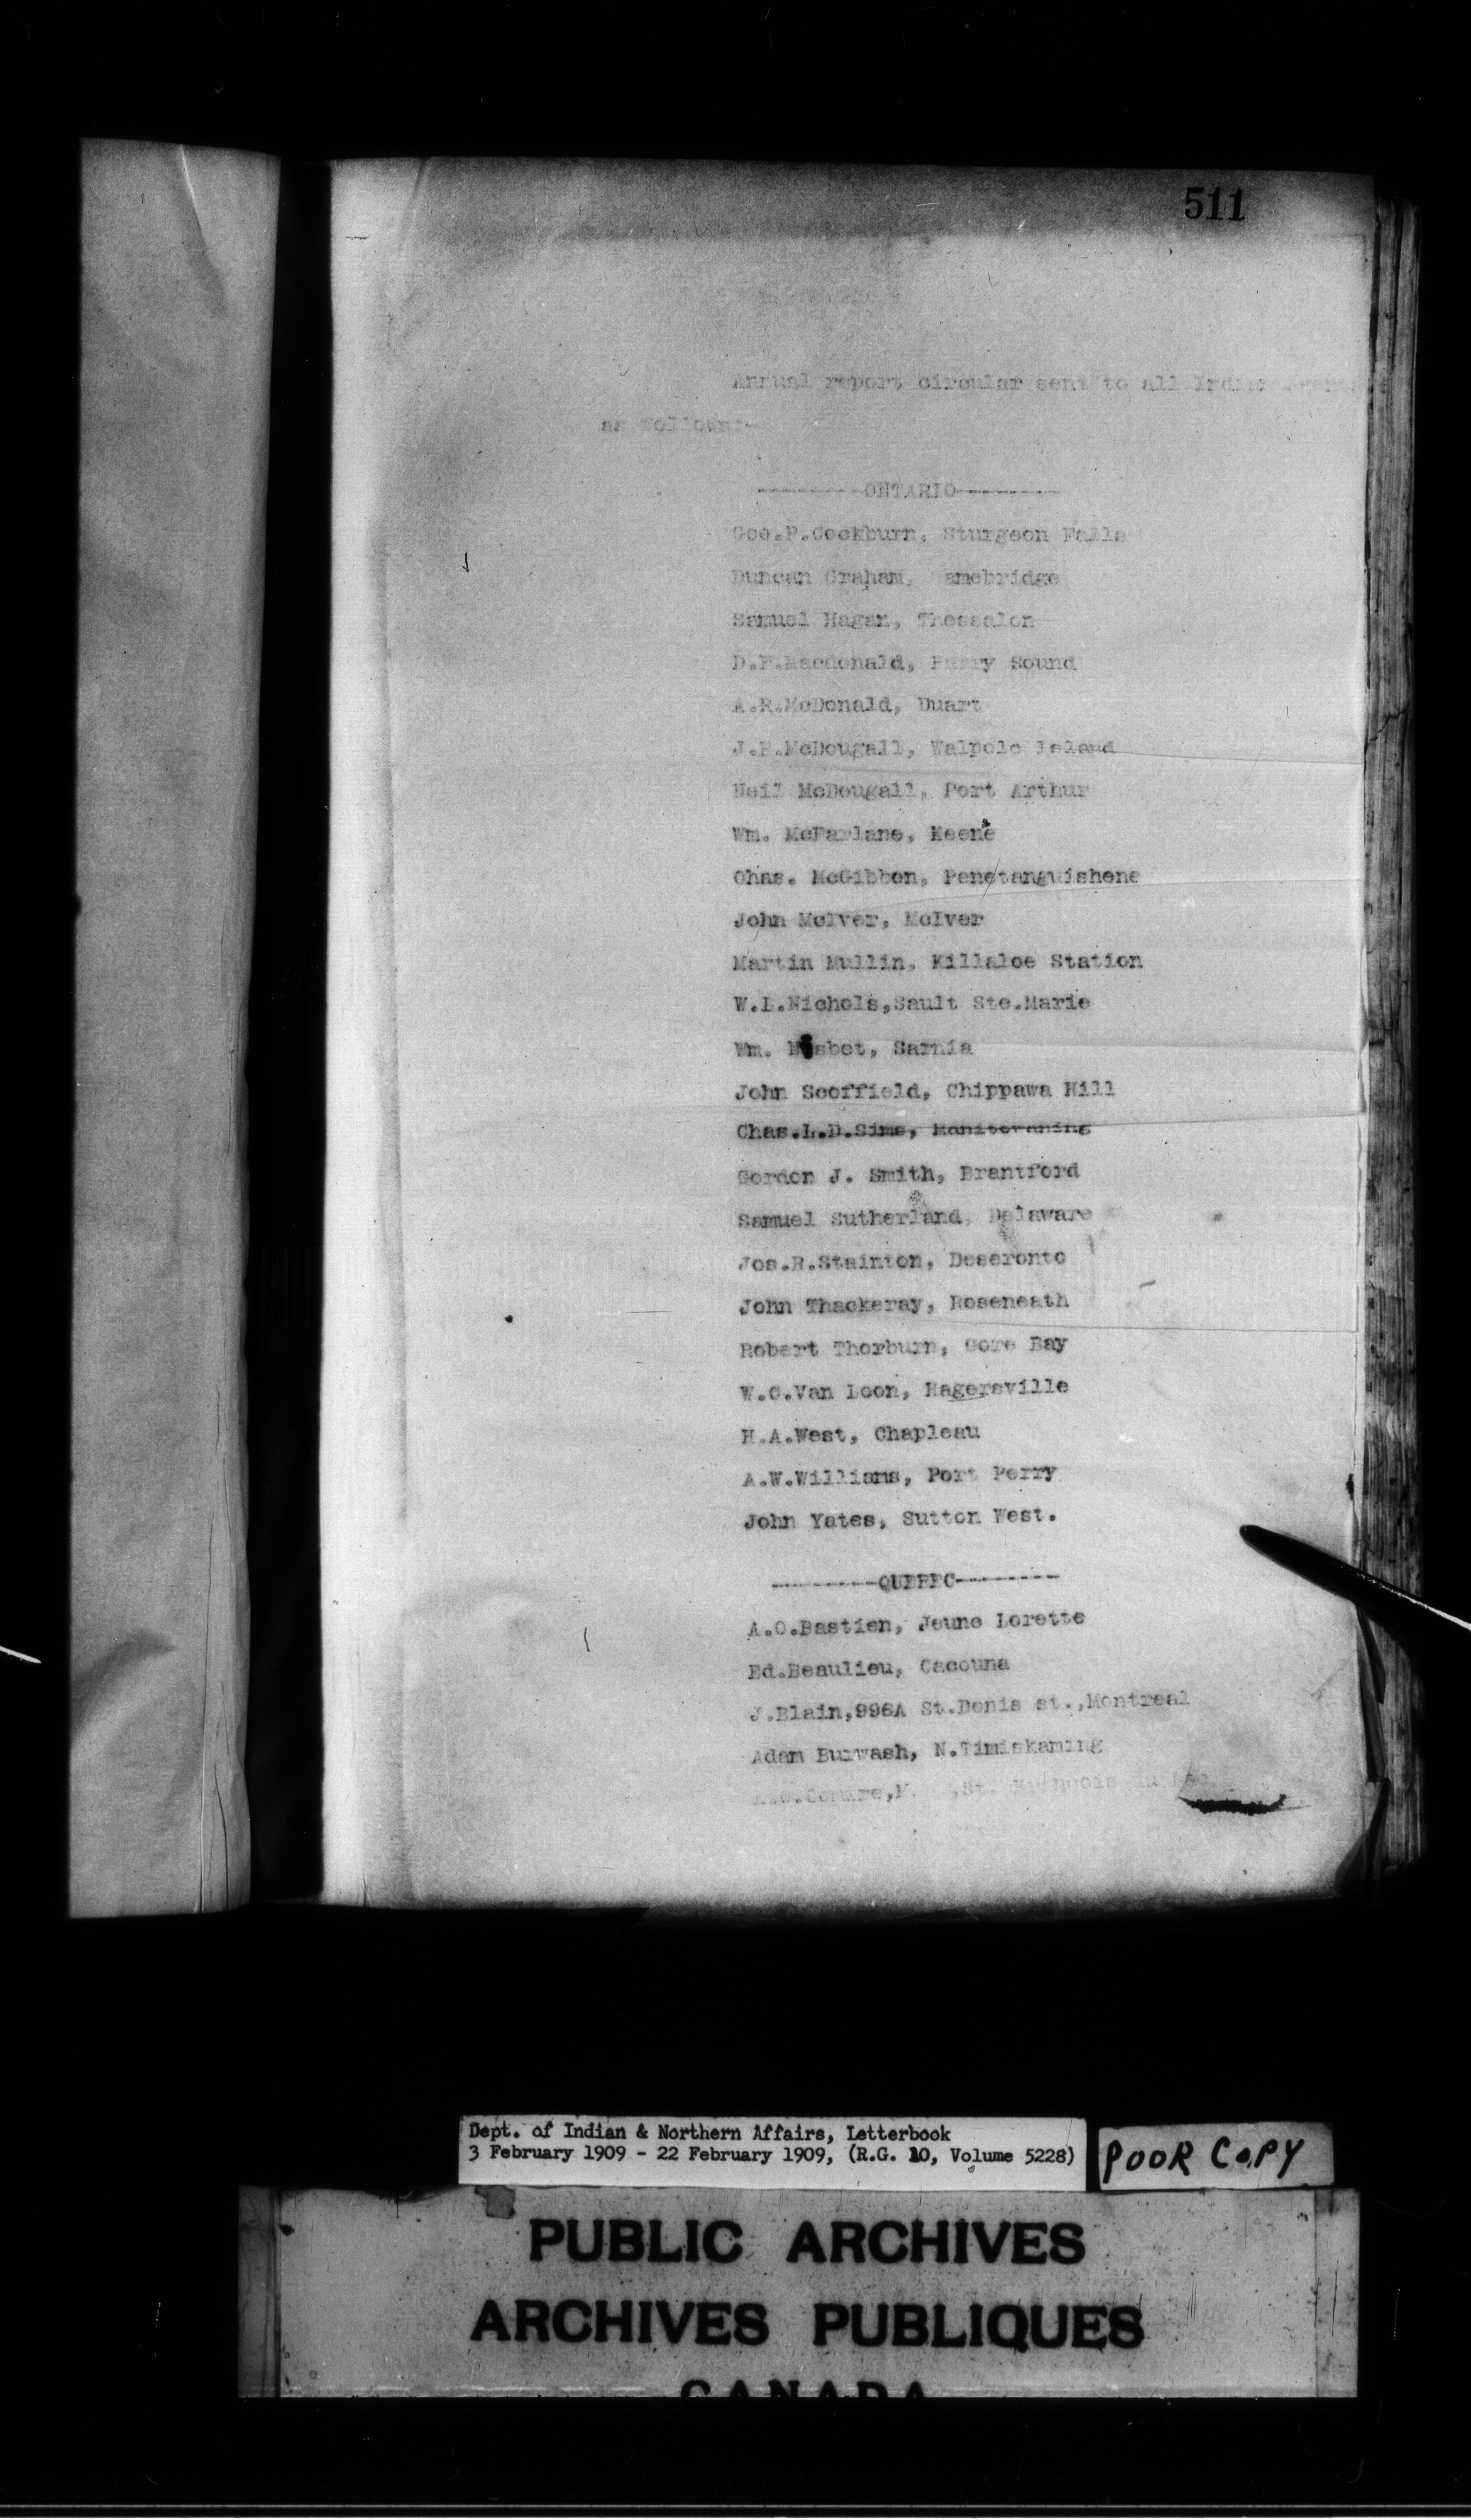 511
Annual report circular sent to all Indian Agents
as follows:-
---------ONTARIO---------
Geo.P.Cockburn, Sturgeon Falls
Duncan Graham, amebridge
Samuel Hagan, Thessalon
D.F.Macdonald, Parry Sound
A.R.McDonald, Duart
J.B.McDougall, Walpole Island
Neil McDougall, Port Arthur
Wm. McFarlane, Keene
Chas. McGibbon, Penetanguishene
John McIver, McIver
Martin Mullin, Killaloe Station
W.L.Nichols,Sault Ste.Marie
Wm. Nisbet, Sarnia
John Scoffield, Chippawa Hill
Chas.L.D.Sims, Manitowaning
Gordon J. Smith, Brantford
Samuel Sutherland, Delaware
Jos.R.Stainton, Deseronto
John Thackeray, Roseneath
Robert Thorburn, Gore Bay
W.C.Van Loon, Hagersville
H.A.West, Chapleau
A.W.Williams, Port Perry
John Yates, Sutton West.
---------QUEBEC---------
A.O.Bastien, Jeune Lorette
Ed.Beaulieu, Cacouna
J.Blain,996A St.Denis st.,Montreal
Adam Burwash, N.Timiskaming
Dept. of Indian & Northern Affairs, Letterbook
3 February 1909 - 22 February 1909, (R.G. 10, Volume 5228)
POOR COPY
PUBLIC ARCHIVES
ARCHIVES PUBLIQUES
CANADA